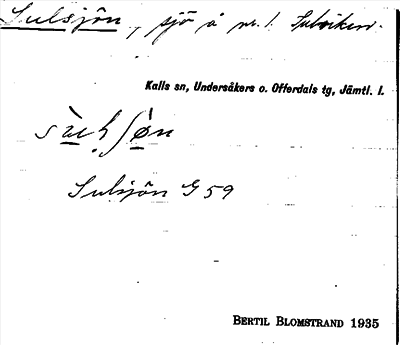 Sulsjön, sjö å nr. 1. Sulviken.
Kalls sn, Undersåkers o. Offerdals tg, Jämtl. l.
Sulsjön G 59
BERTIL BLOMSTRAND 1935